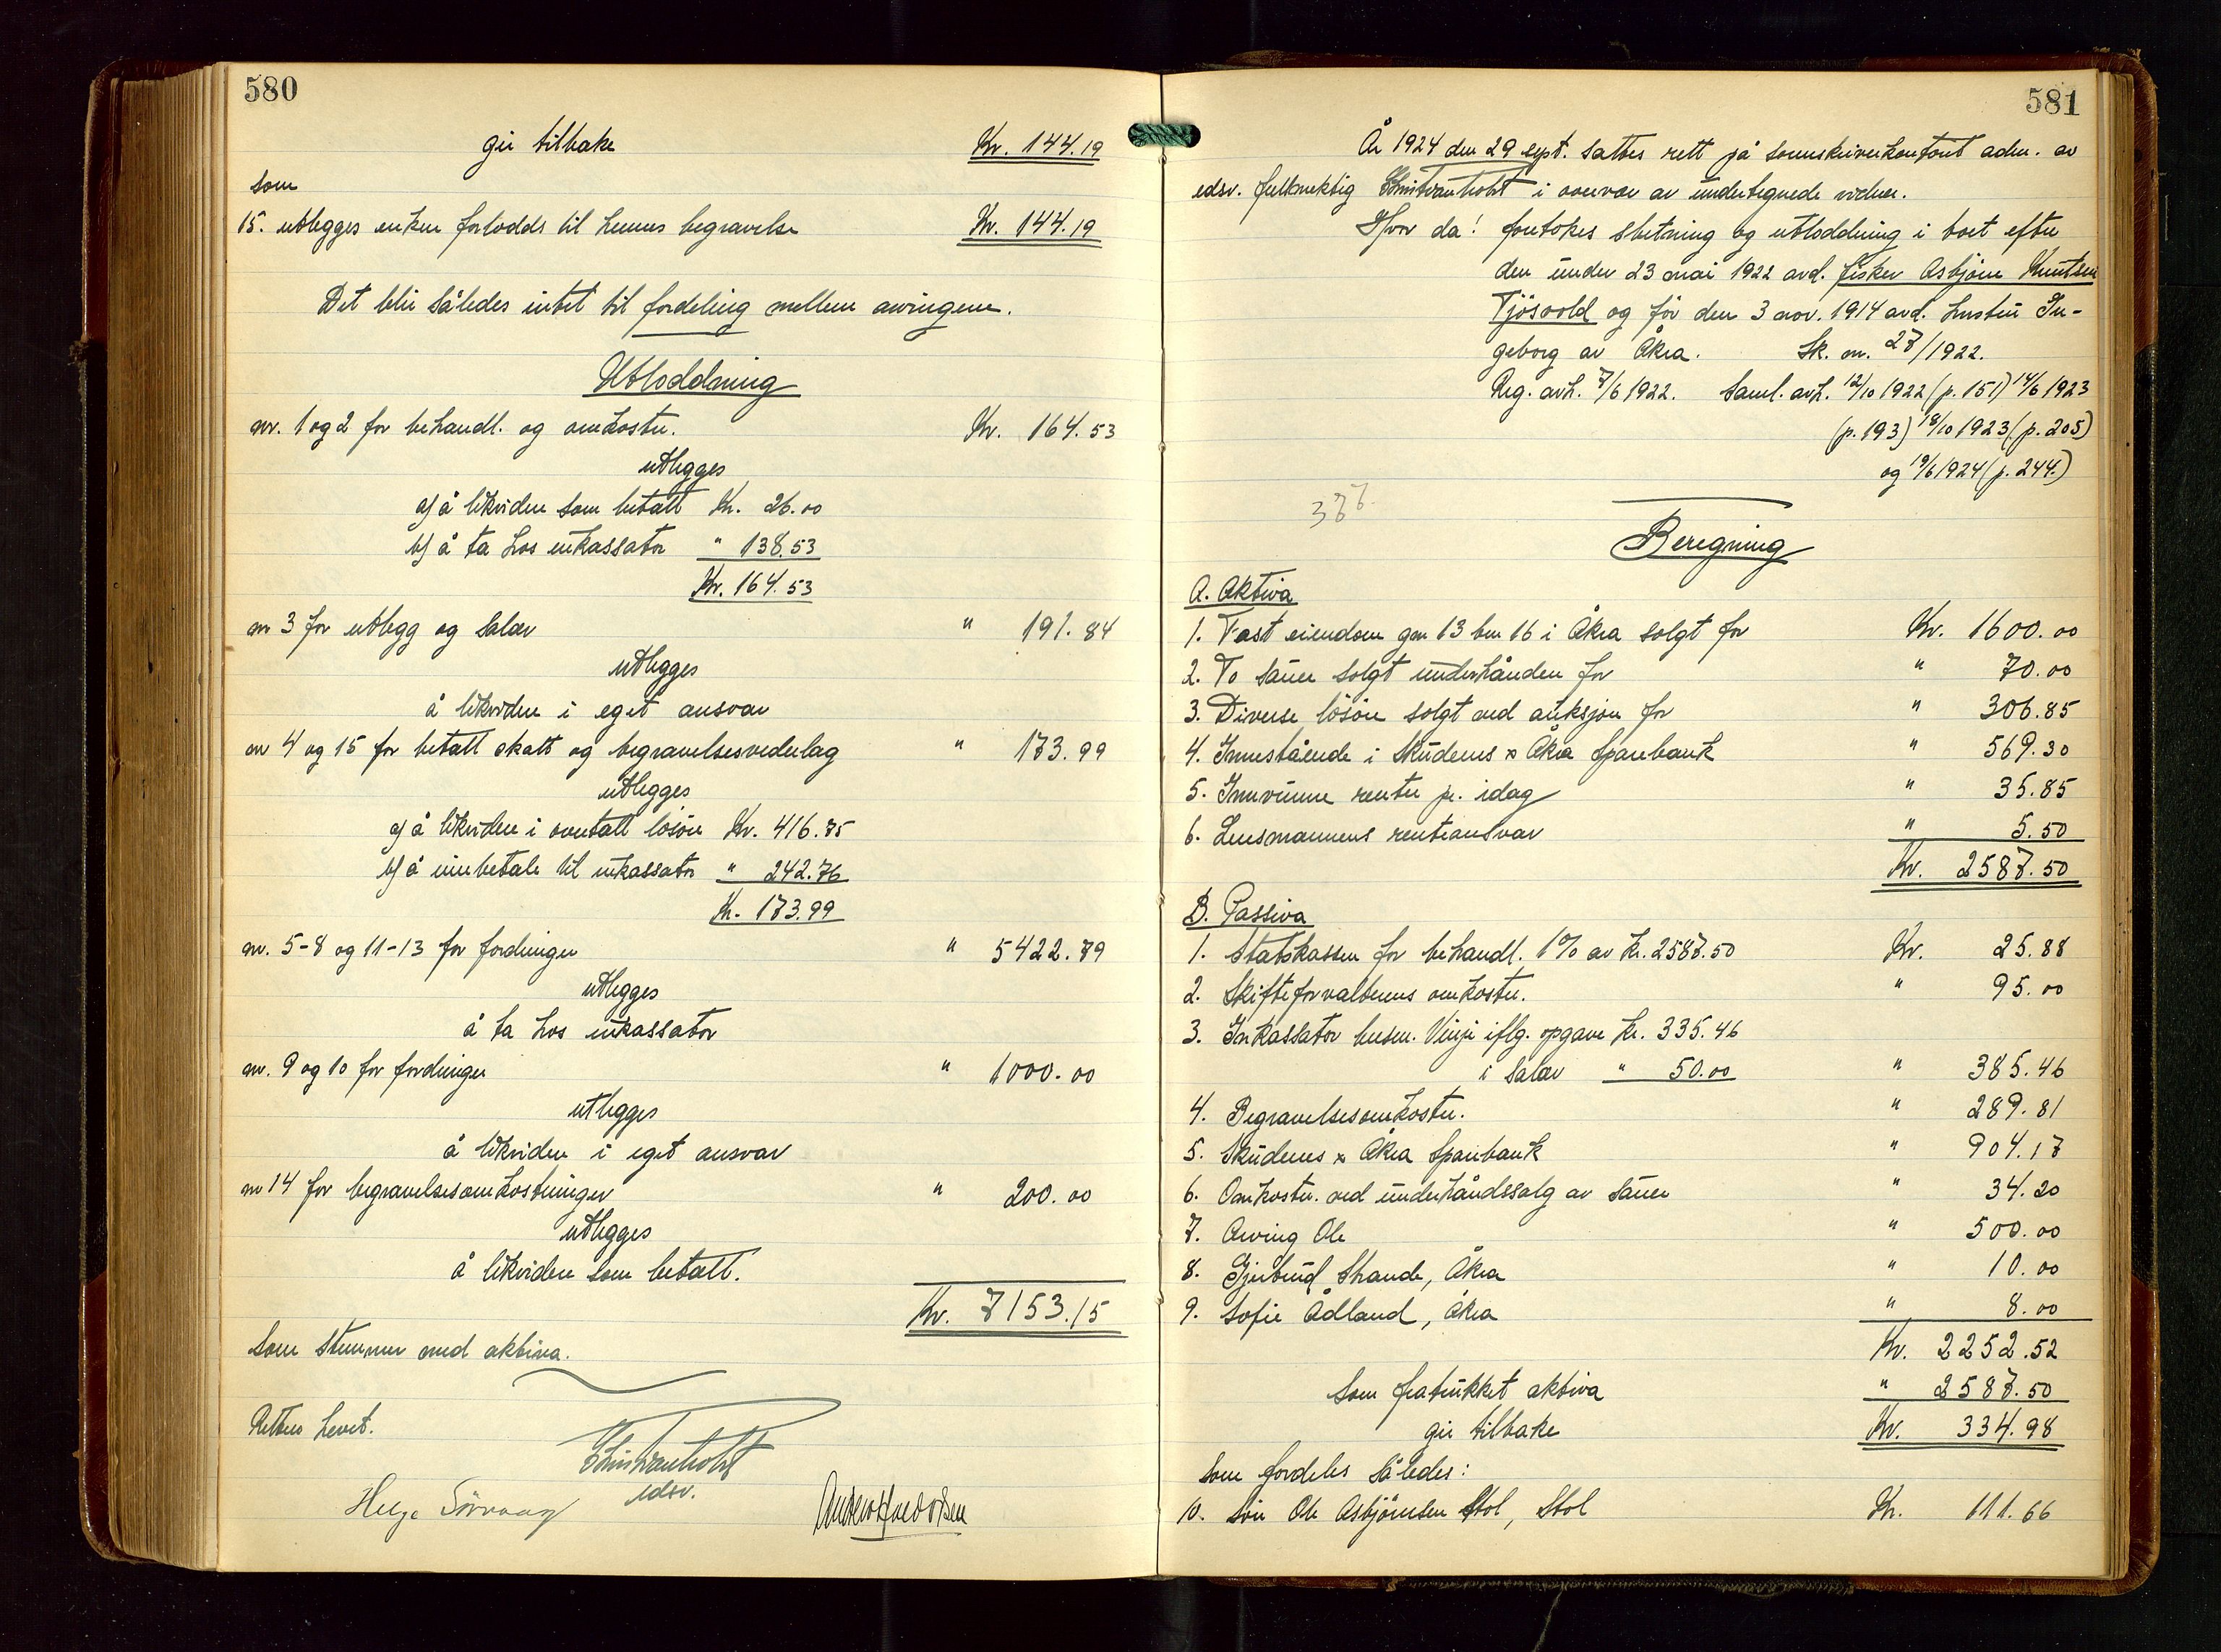 580
gir tilbake Kr. 144.19
som
15. utlegges enken forlodds til hennes begravelse Kr. 144.19
Det blir således intet til fordeling mellem arvingene.
Utloddning
nr. 1 og 2 for behandl. og omkostn. Kr. 164.53
utlegges
a) å likviden som betalt Kr. 26.00
b) å ta hos inkassator " 138.53
Kr. 164.53
nr 3 for utlegg og salær " 191.84
utlegges
å likviden i eget ansvar
nr 4 og 15 for betalt skatt og begravelsesvederlag " 173.99
utlegges
a) å likviden i overtatt løsøre Kr. 416.75
b) å innbetale til inkassator " 242.76
Kr. 173.99
nr. 5-8 og 11-13 for fordringer " 5422.79
utlegges
å ta hos inkassator
nr. 9 og 10 for fordringer " 1000.00
utlegges
å likviden i eget ansvar
nr 14 for begravelsesomkostninger " 200.00
utlegges
å likviden som betalt.
Kr. 7153.15
Som stemmer med aktiva.
Retten hevet.
edsv.
Helge Sörvaag
581
År 1924 den 29 sept. sattes rett på sorenskriverkontoret adm. av
edsv. fullmektig i overvær av undertegnede vidner.
Hvor da! foretokes slutning og utloddning i boet efter
den under 23 mai 1922 avd. fisker Asbjørn Knutsen
Tjösvold og før den 3 nov. 1914 avd. hustru In-
geborg av Åkra. Sk. nr. 27/1922.
Reg. avh. 7/6 1922. Saml. avh. 12/10 1922 (p. 151) 14/6 1923
(p. 193) 18/10 1923 (p. 205)
og 19/6 1924 (p. 244.)
Beregning
A. Aktiva
1. Fast eiendom gnr 13 bnr 16 i Åkra solgt for Kr. 1600.00
2. To sauer solgt underhånden for " 70.00
3. Diverse løsøre solgt ved auksjon for " 306.85
4. Innestående i Skudenes & Åkra Sparebank " 569.30
5. Innvunne renter pr. idag " 35.85
6. Lensmannens renteansvar " 5.50
Kr. 2587.50
B. Passiva
1. Statskassen for behandl. 1% av Kr. 2587.50 Kr. 25.88
2. Skifteforvalterens omkostn. " 95.00
3. Inkassator lensm. Vinje iflg. opgave Kr. 335.46
i salær " 50.00 " 385.46
4. Begravelsesomkostn. " 289.81
5. Skudenes & Åkra Sparebank " 904.17
6. Omkostn. ved underhåndssalg av sauer " 34.20
7. Arving Ole " 500.00
8. Gjertrud Strande, Åkra " 10.00
9. Sofie Ådland, Åkra " 8.00
Kr. 2252.52
Som fratrukket aktiva " 2587.50
gir tilbake Kr. 334.98
som fordeles således:
10. Søn Ole Asbjørnsen Stol, Stol Kr. 111.66